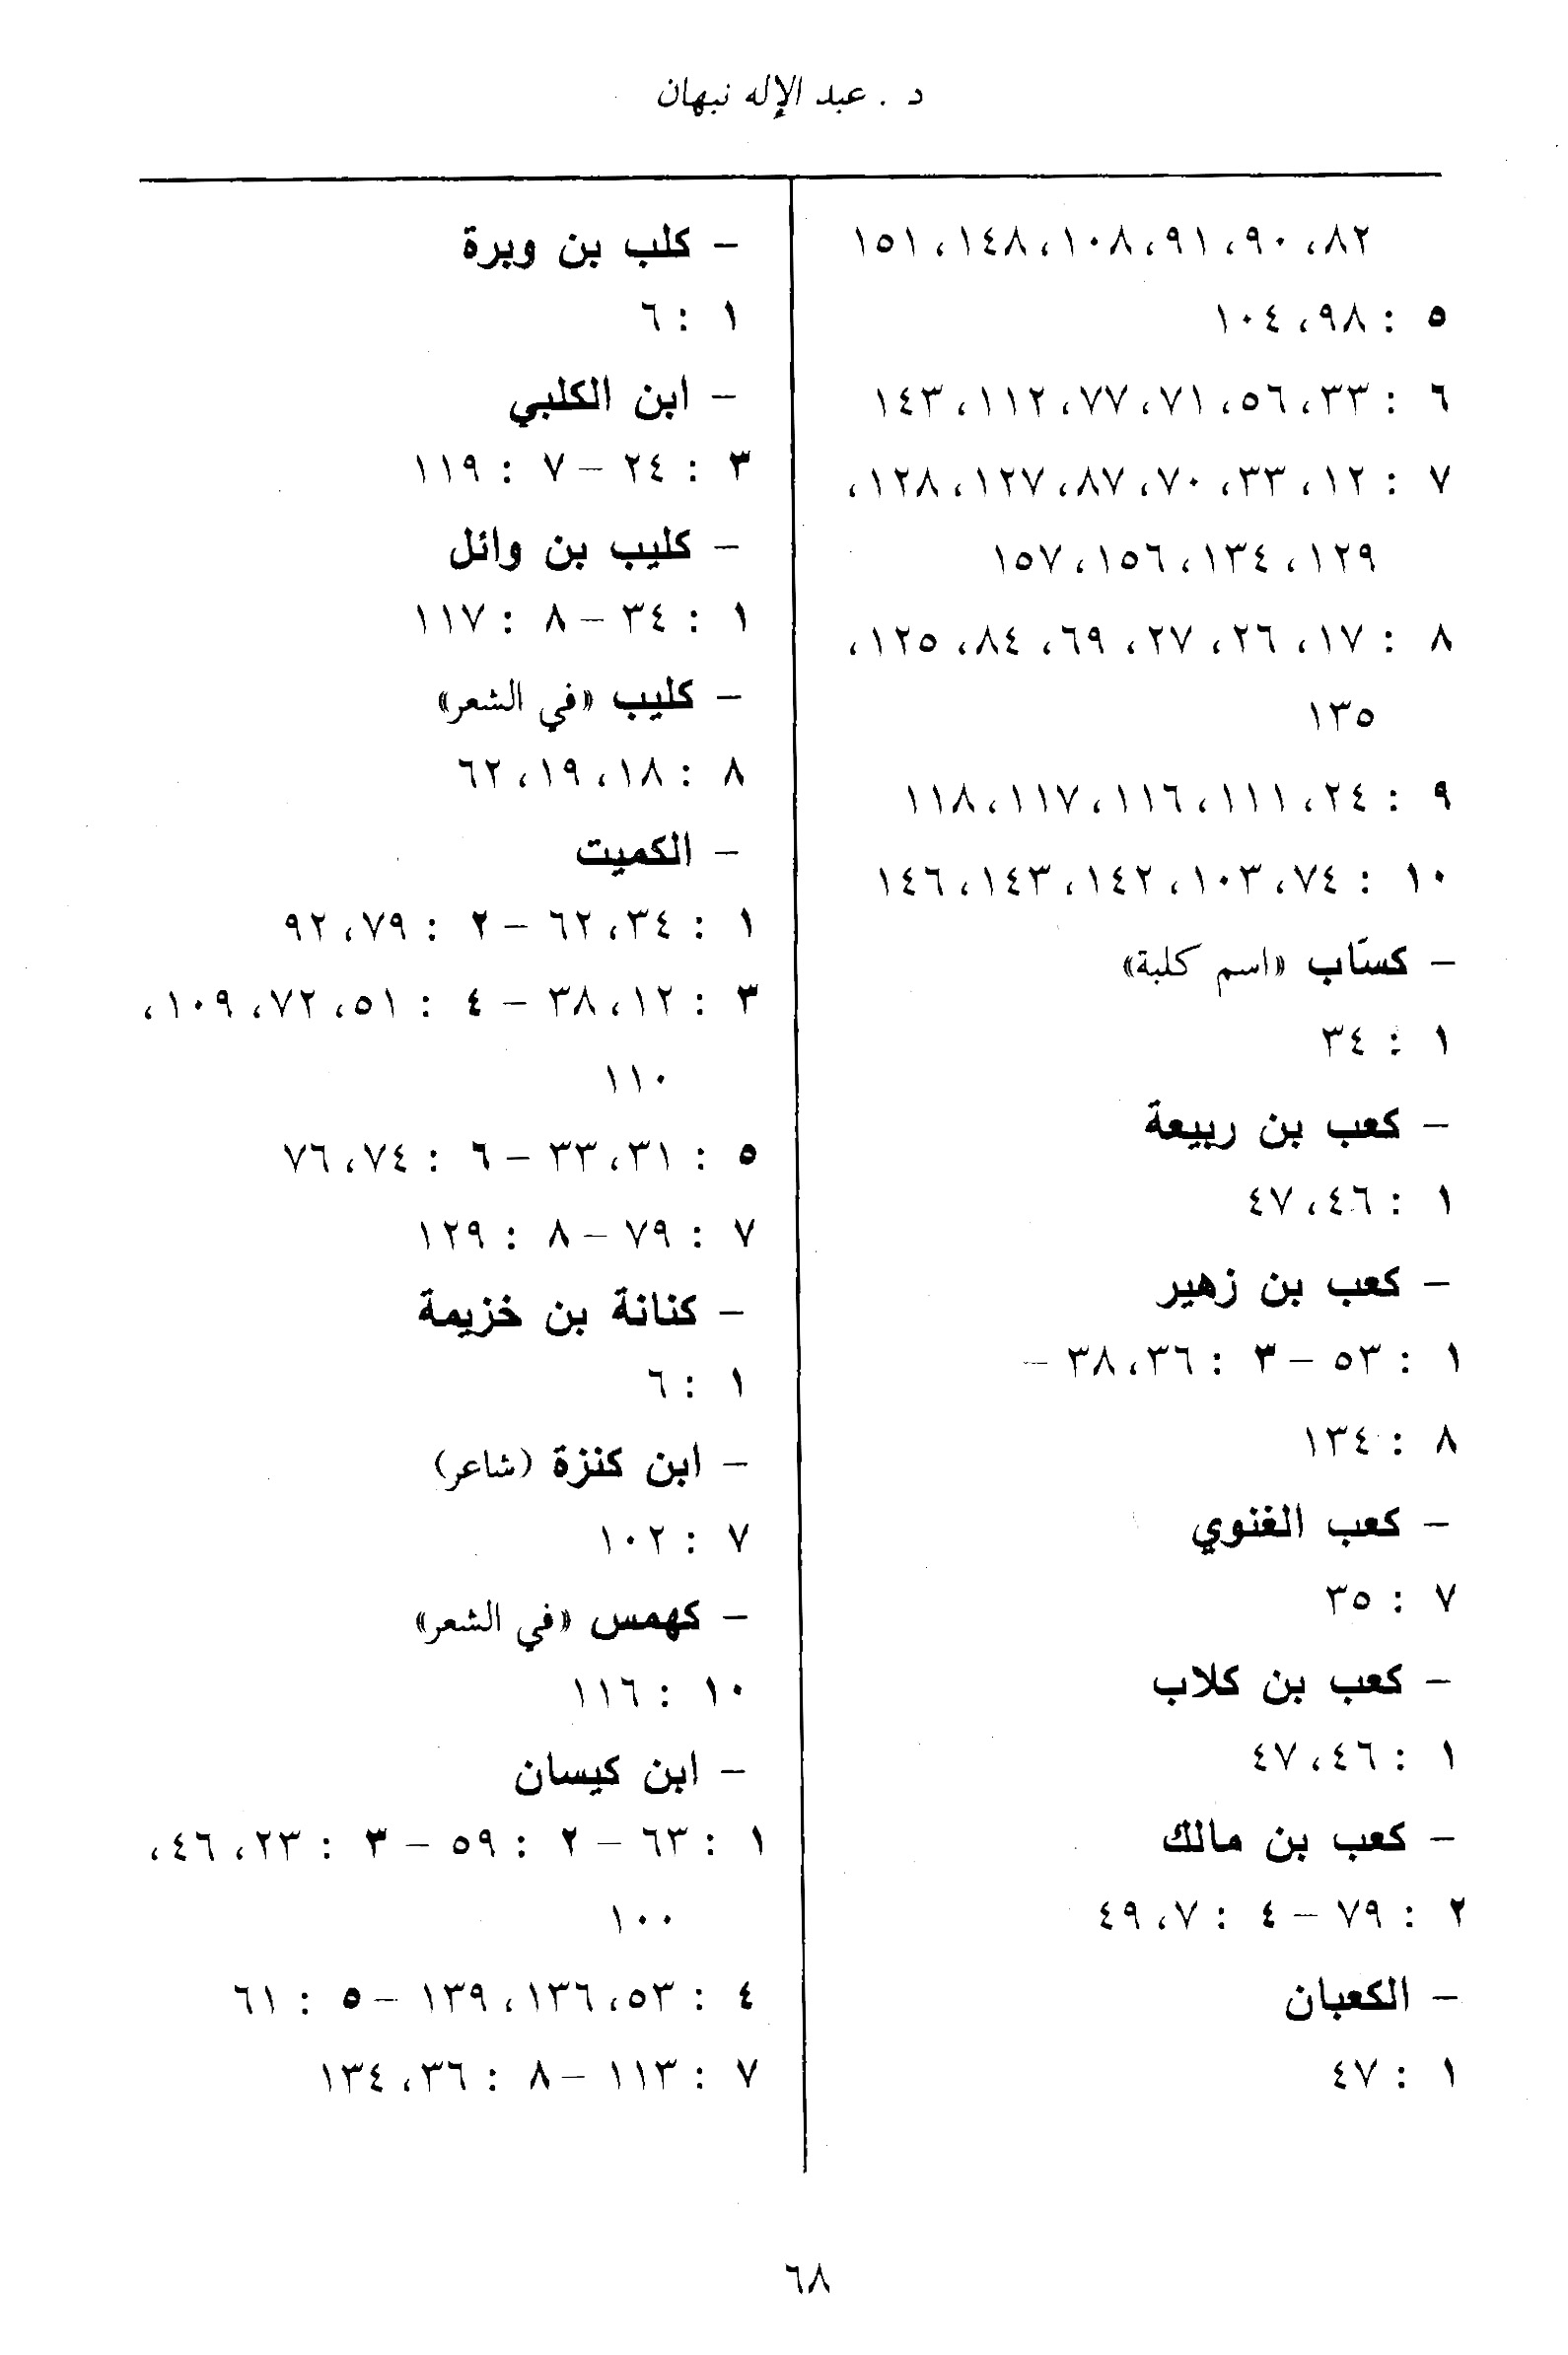 د . عبد الإله نبهان
٨٢، ٩٠، ٩١، ١٠٨، ١٤٨، ١٥١
٥ : ٩٨، ١٠٤
٦ : ٣٣، ٥٦، ٧١، ٧٧، ١١٢، ١٤٣
٧ : ١٢، ٣٣، ٧٠، ٨٧، ١٢٧، ١٢٨،
١٢٩، ١٣٤، ١٥٦، ١٥٧
٨ : ١٧، ٢٦، ٢٧، ٦٩، ٨٤، ١٢٥،
١٣٥
٩ : ٢٤، ١١١، ١١٦، ١١٧، ١١٨
١٠ : ٧٤، ١٠٣، ١٤٢، ١٤٣، ١٤٦
– كسّاب «اسم كلبة»
١ : ٣٤
– كعب بن ربيعة
١ : ٤٦، ٤٧
– كعب بن زهير
١ : ٥٣ – ٣ : ٣٦، ٣٨ –
٨ : ١٣٤
– كعب الغنوي
٧ : ٣٥
– كعب بن كلاب
١ : ٤٦، ٤٧
– كعب بن مالك
٢ : ٧٩ – ٤ : ٧، ٤٩
– الكعبان
١ : ٤٧
– كلب بن وبرة
١ : ٦
– ابن الكلبي
٣ : ٢٤ – ٧ : ١١٩
– كليب بن وائل
١ : ٣٤ – ٨ : ١١٧
– كليب «في الشعر»
٨ : ١٨، ١٩، ٦٢
– الكميت
١ : ٣٤، ٦٢ – ٢ : ٧٩، ٩٢
٣ : ١٢، ٣٨ – ٤ : ٥١، ٧٢، ١٠٩،
١١٠
٥ : ٣١، ٣٣ – ٦ : ٧٤، ٧٦
٧ : ٧٩ – ٨ : ١٢٩
– كنانة بن خزيمة
١ : ٦
– ابن كنزة (شاعر)
٧ : ١٠٢
– كهمس «في الشعر»
١٠ : ١١٦
– ابن كيسان
١ : ٦٣ – ٢ : ٥٩ – ٣ : ٢٣، ٤٦،
١٠٠
٤ : ٥٣، ١٣٦، ١٣٩ – ٥ : ٦١
٧ : ١١٣ – ٨ : ٣٦، ١٣٤
٦٨